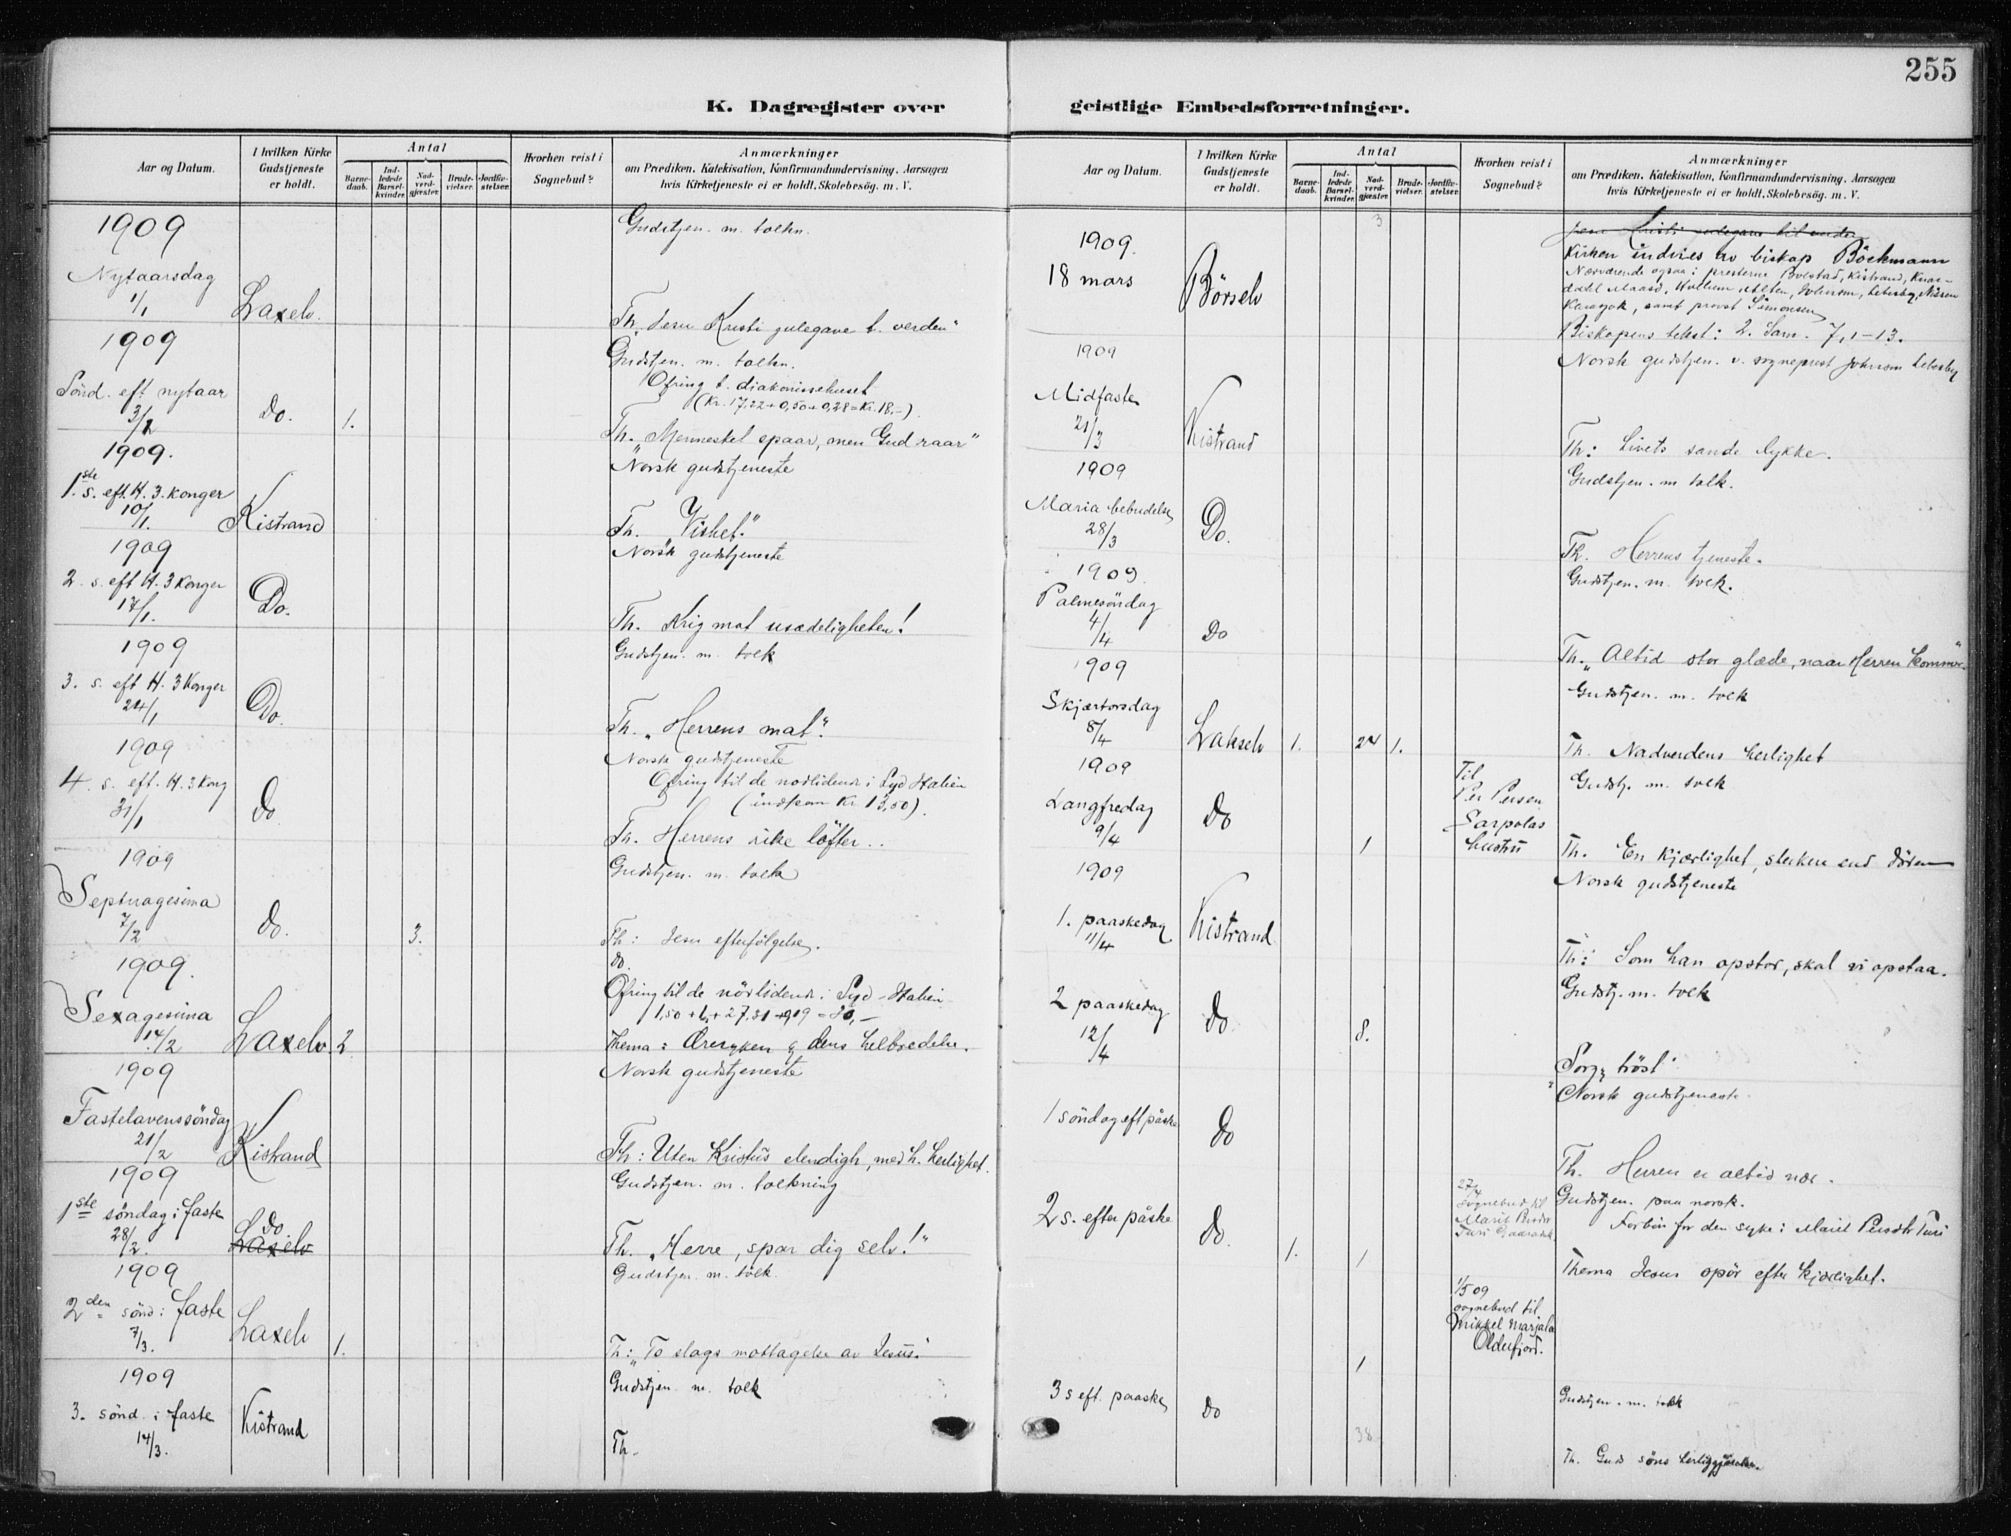 255
K. Dagregister over
Aar og Datum.
I hvilken Kirke
Gudstjeneste
er holdt.
Antal
Barne-
daab.
Ind-
ledede
Barsel-
kvinder.
Nad-
verd-
gjester.
Brude-
vielser.
Jordfæ-
stelser.
Hvorhen reist i
Sognebud?
Anmærkninger
om Prædiken, Katekisation, Konfirmandundervisning, Aarsagen
hvis Kirketjeneste ei er holdt, Skolebesög. m. V.
1909
Nytaarsdag
1/1
Laxelv.
Gudstjen. m. tolkn.
Th. "Jesu Kristi gulegave t. verden"
1909
Sönd. eft nytaar
3/1
Do.
1.
Gudstjen. m. tolkn.
Ofring t. diakonissehuset
(Kr. 17,22+0,50+0,28=Kr. 18,-).
Th. "Mennesket spaar, men Gud raar"
1909.
1.ste s. eft. H. 3. konger
10/1.
Kistrand
Norsk gudstjeneste
Th. "Vishet."
1909
2. s. eft H. 3 konger
17/1.
Do.
Norsk gudstjeneste
Th. Krig mot usædeligheten!
1909
3. s. eft H. 3 Konger
24/1
Do.
Gudstjen. m. tolk
Th. "Herrens mat".
1909
4. s. eft. H. 3 Kong
31/1
Do
Norsk gudstjeneste
Ofring til de nødlidende i Syd Italien
(indkom Kr. 13,50).
Th. Herrens rike löfter..
1909
Septuagesima
7/2
Do.
3.
Gudstjen. m. tolk
Th: Jesu efterfölgelse.
1909.
Sexagesima
14/2
Laxelv
2
do.
Ofring til de nödlidende i Syd-Italien
Thema: Æresyken & dens helbredelse.
1909
Fastelavenssöndag
21/2
Kistrand
Norsk gudstjeneste
Th: Uten Kristus elendigh, med h. herlighet.
1909
1ste söndag i faste
28/2.
Do.
Laxelv
Gudstjen. m. tolkning
Th. "Herre, spar dig selv!"
1909
2den sönd i faste
7/3.
Laxelv
1.
Gudstjen. m. tolk.
Th: "To slags mottagelse av Jesus."
1909
3. sönd. i faste
14/3.
Kistrand
Gudstjen. m. tolk
Th.
geistlige Embedsforretninger.
Aar og Datum.
I hvilken Kirke
Gudstjeneste
er holdt.
Antal
Barne-
daab.
Ind-
ledede
Barsel-
kvinder.
Nad-
verd-
gjester.
Brude-
vielser.
Jordfæ-
stelser.
Hvorhen reist i
Sognebud?
Anmærkninger
om Prædiken, Katekisation, Konfirmandundervisning, Aarsagen
hvis Kirketjeneste ei er holdt, Skolebesög. m. V.
3
1909.
18 mars
Börselv
Jesu Kristi gulegave til verden
Kirken indvies av biskop Böckmann
Nærværende ogsaa: presterne Bovestad, Kistrand,
Maasö, Alten, Johnson, Lebesby, Nissen
Karasjok, samt provst Simonsen
Biskopens tekst: 2. Sam. 7,1-13.
1909
Midfaste
21/3
Kistrand
Norsk gudstjen. v. sogneprest Johnson Lebesby
Th: Livets sande lykke.
1909
Maria bebudelse
28/3
Do.
Gudstjen. m tolk.
Th. Herrens tjeneste.
1909.
Palmesöndag
4/4
Do
Gudstjen. m. tolk.
Th. "Altid stor glæde, naar Herren kommer"
1909
Skjærtorsdag
8/4
Lakselv
1.
24
1.
Gudstjen. m. tolk
Th. Nadverdens herlighet
1909
Langfredag
9/4
Do
1
Til
Per Persen
Sarpolas
hustru
Gudstj. m. tolk
Th. En kjærlighet, sterkere end döden
1909
1. paaskedag
11/4
Kistrand
Norsk gudstjeneste
Th: Som han opstod, skal vi opstaa.
2 paaskedag
12/4
Do
8.
Gudstj. m. tolk
Sorg, tröst
1 söndag eft påske
Do
Norsk gudstjeneste.
Th. Herren er altid nær.
2 s. efter påske
Do.
1.
1
27/4
Sognebud til
Marit Persdr
Turi
Gudstjen. paa norsk.
Forbön for den syke: Marit Persdtr Turi
Thema Jesus spör efter kjærlighet.
1/5 09
sognebud til
Mikkel Marjala
Olderfjord.
1
3 s eft. paaske
Do
38
Gudstjen. m. tolk
Th. Guds söns herliggjörelse.